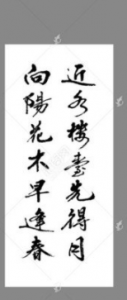 近水樓臺先得月
向陽花木早逢春